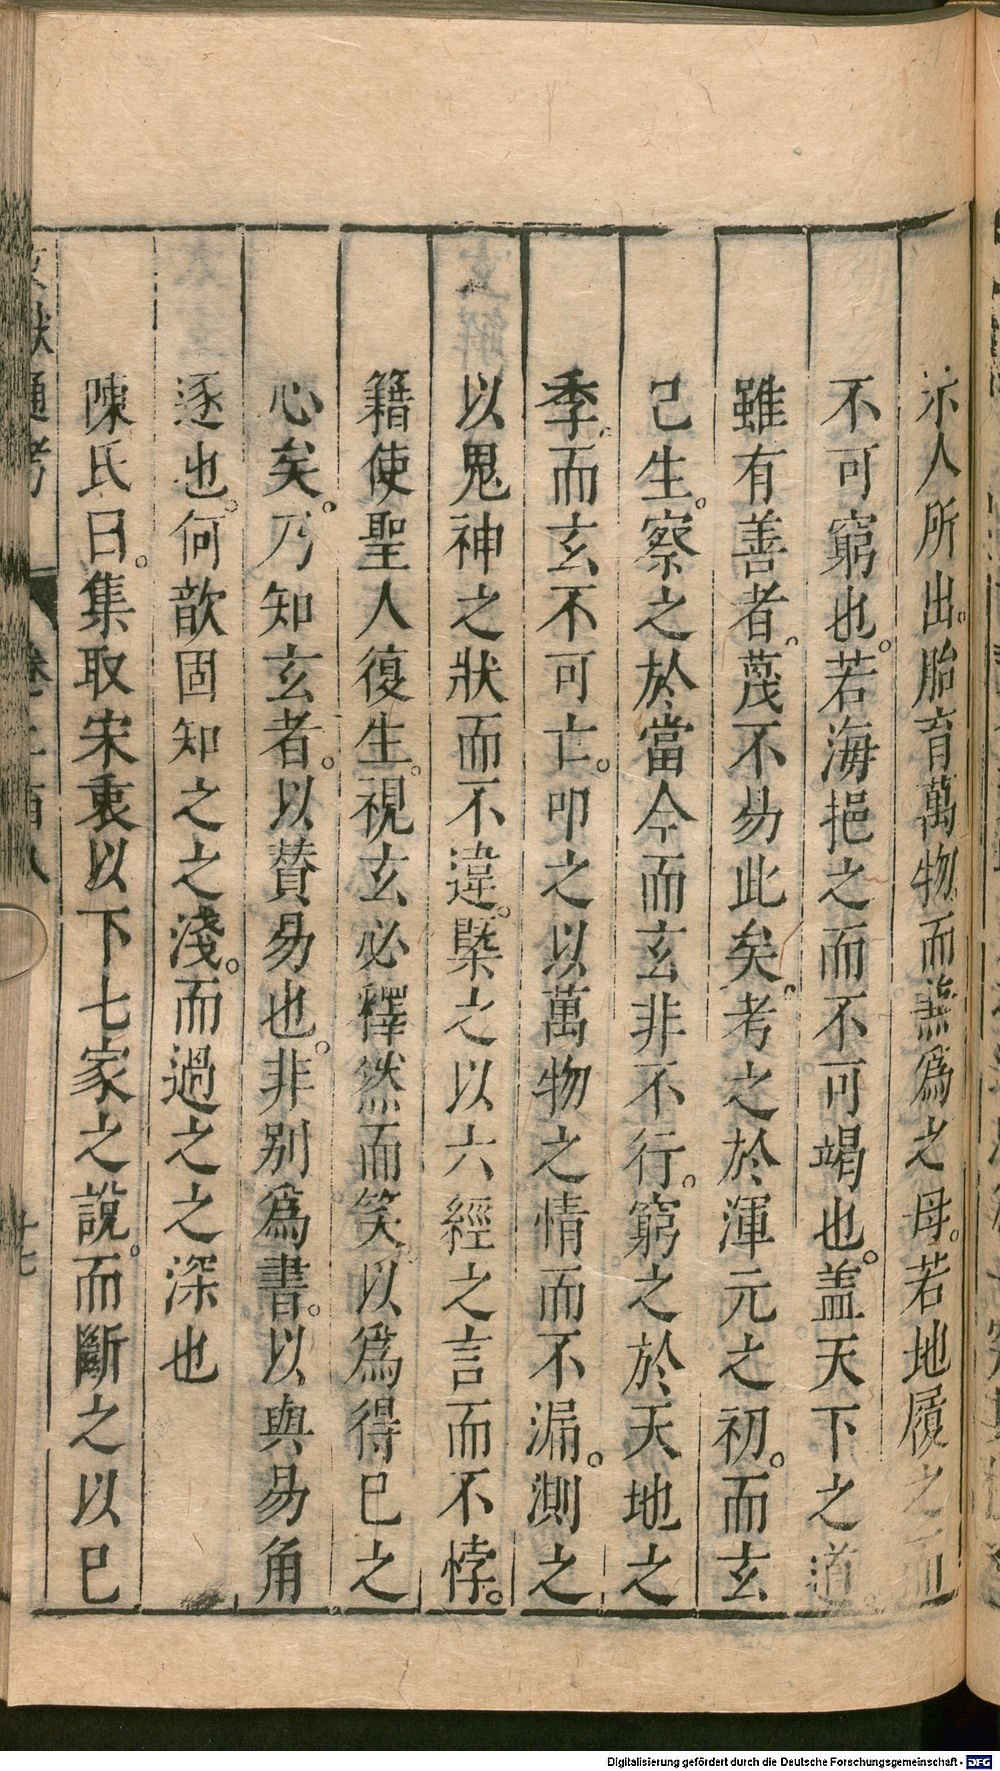 示人所出。胎育萬物。而兼爲之母。若地履之而
不可窮也。若海挹之而不可竭也。盖天下之道。
雖有善者。蔑不易此矣。考之於渾元之初。而玄
己生。察之於當今而玄非不行。窮之於天地之
季。而玄不可亡。叩之以萬物之情而不漏。測之
以鬼神之狀而不違。槩之以六經之言而不悖。
籍使聖人復生。視玄必釋然而笑以爲得巳之
心矣。乃知玄者。以賛易也。非别爲書。以與易角
逐也。何歆固知之之淺。而過之之深也
陳氏曰。集取宋衷以下七家之說。而斷之以巳
文獻通考 卷二百八 廿七
Digitalisierung gefördert durch die Deutsche Forschungsgemeinschaft - DFG